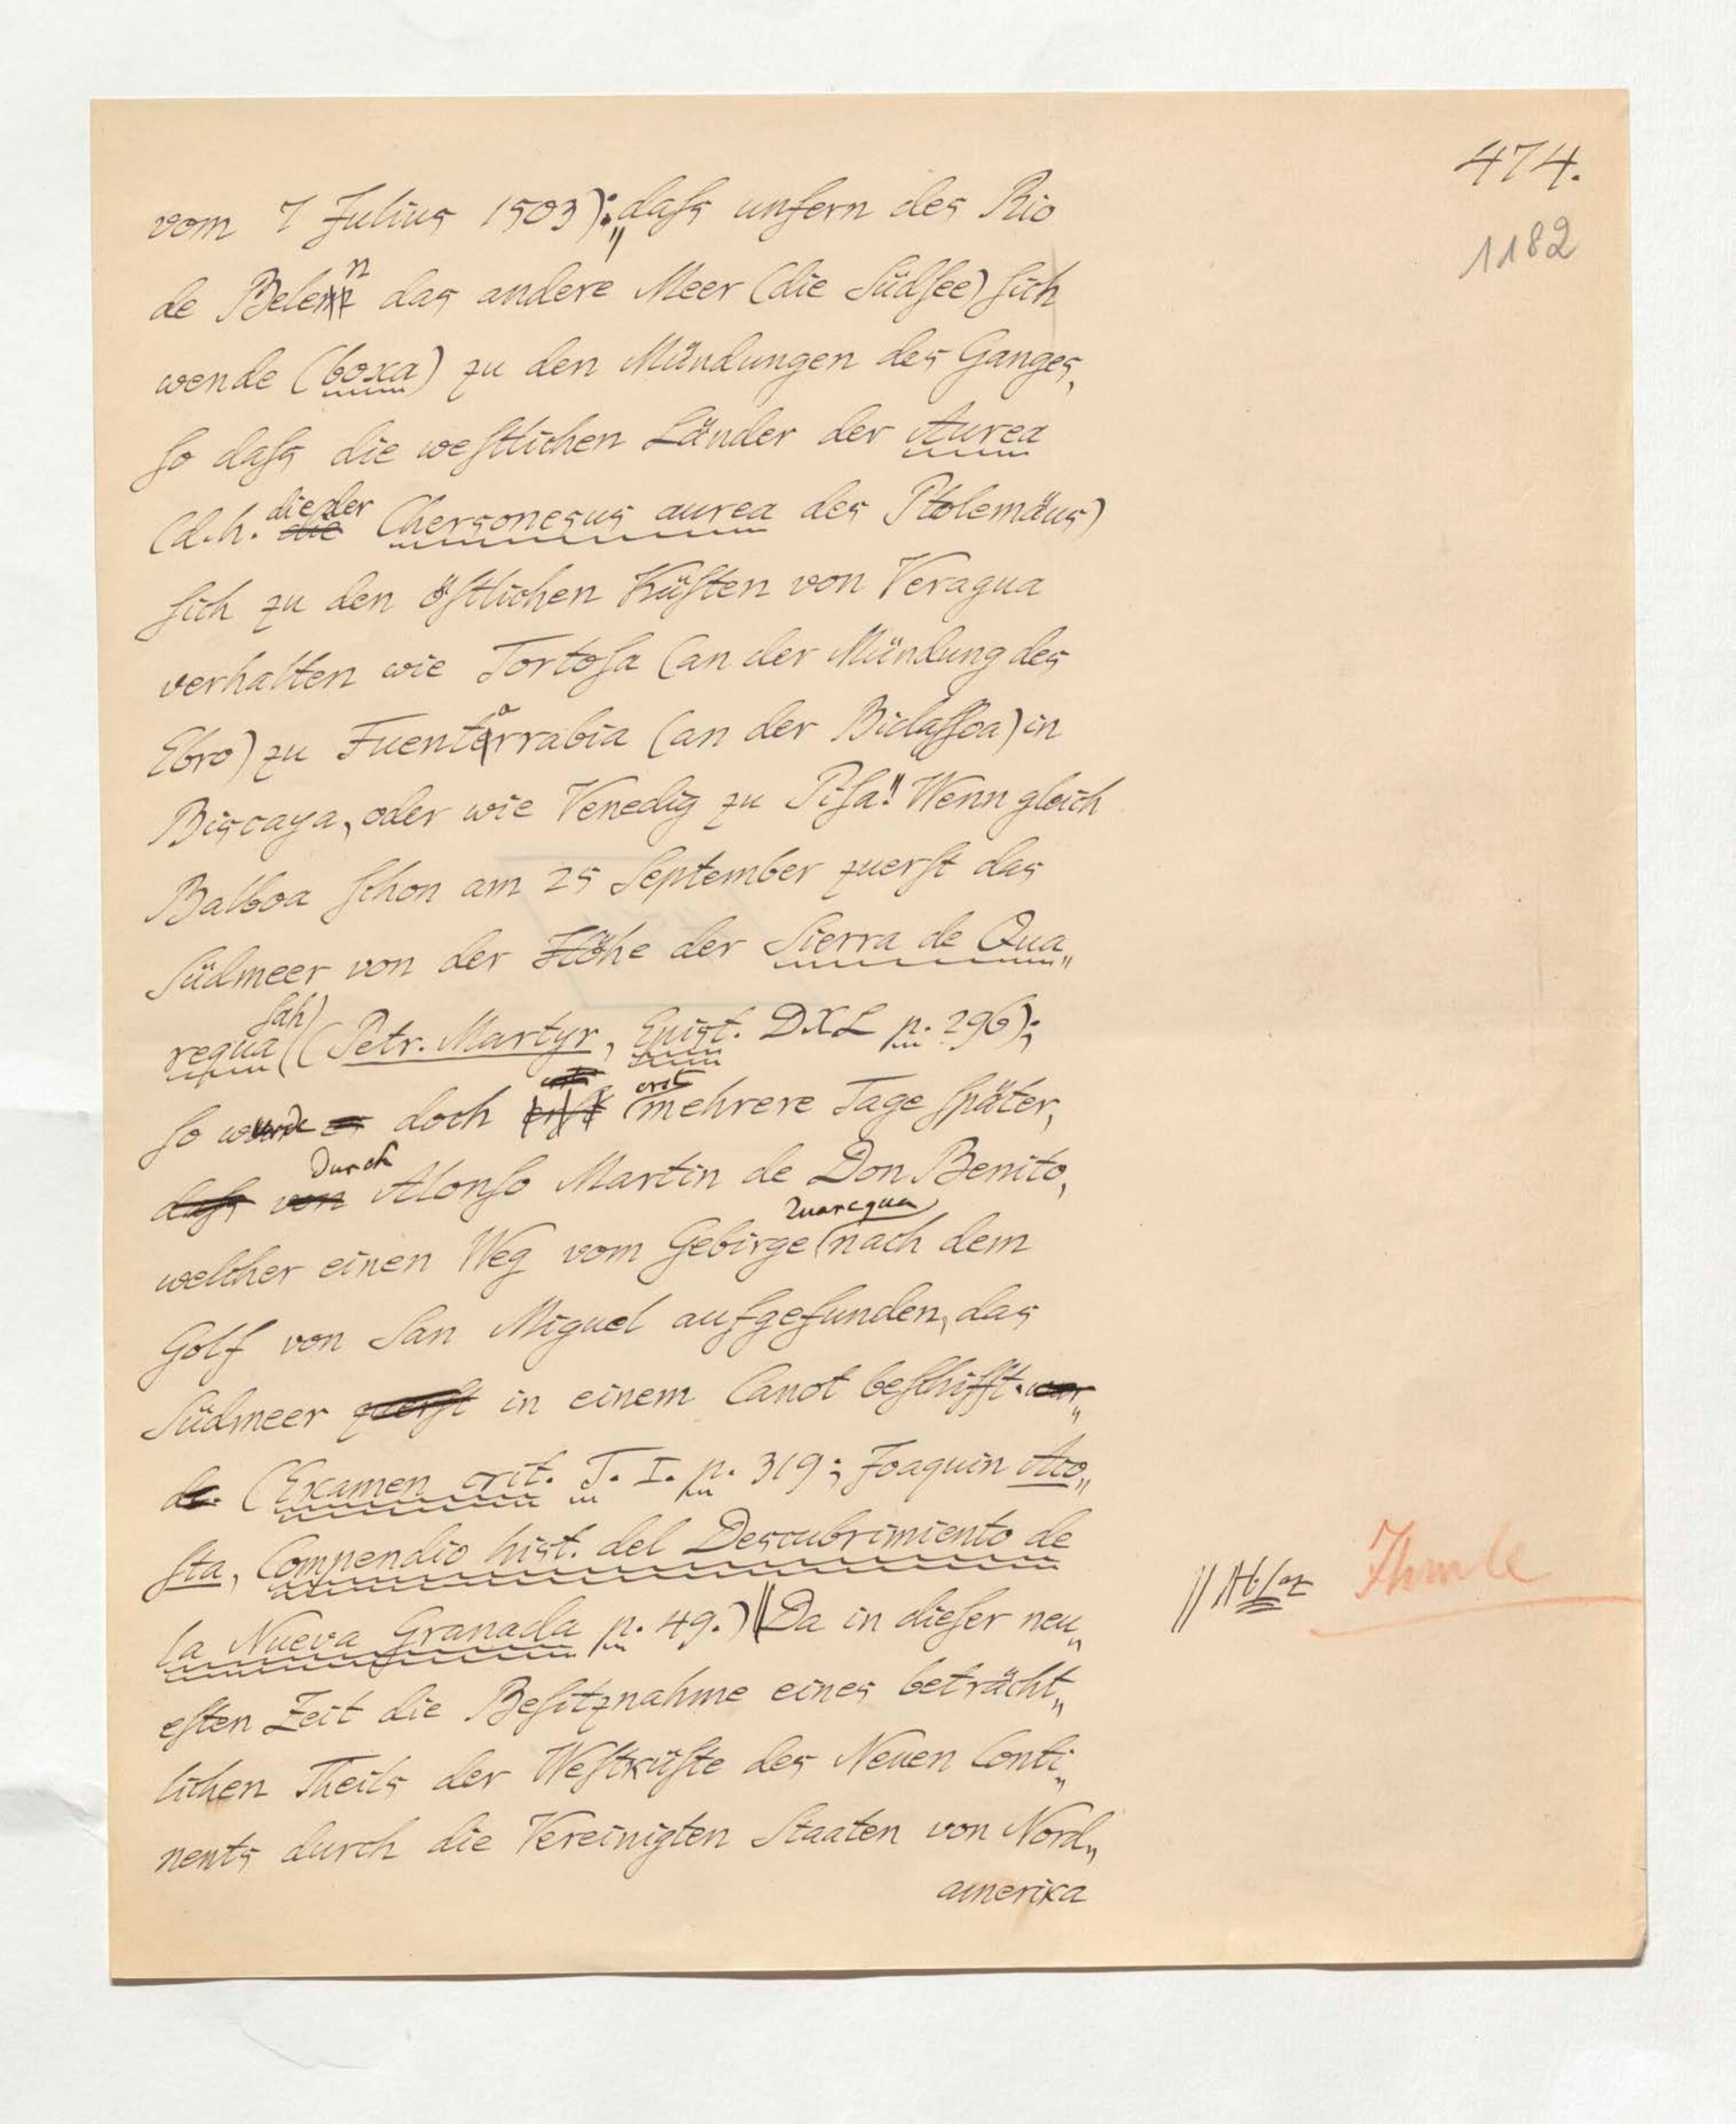 474.
1182
vom 7 Julius 1503): „daſs unfern des Rio
de Belen das andere Meer (die Südſee) ſich
wende (boxa) zu den Mündungen des Ganges,
ſo daſs die weſtlichen Länder der Aurea
(d. h. die der Chersonesus aurea des Ptolemäus)
ſich zu den öſtlichen Küſten von Veragua
verhalten wie Tortoſa (an der Mündung des
Ebro) zu Fuentarrabia (an der Bidaſſoa) in
Biscaya, oder wie Venedig zu Piſa." Wenn gleich
Balboa ſchon am 25 September zuerſt das
Südmeer von der Höhe der Sierra de Qua„
requa ſah (Petr. Martyr, Epist. DXL p. 296);
ſo wurde doch erst mehrere Tage ſpäter,
daſs von durch Alonſo Martin de Don Benito,
welcher einen Weg vom Gebirge Quarequa nach dem
Golf von San Miguel aufgefunden, das
Südmeer zuerſt in einem Canot beſchifft. wur„
de. (Examen crit. T. I. p. 319; Joaquin Aco„
ſta, Compendio hist. del Descubrimiento de
la Nueva Granada p. 49.) || Da in dieſer neu„
eſten Zeit die Beſitznahme eines beträcht„
lichen Theils der Weſtküſte des Neuen Conti„
nents durch die Vereinigten Staaten von Nord„
amerika
|| Abſaz